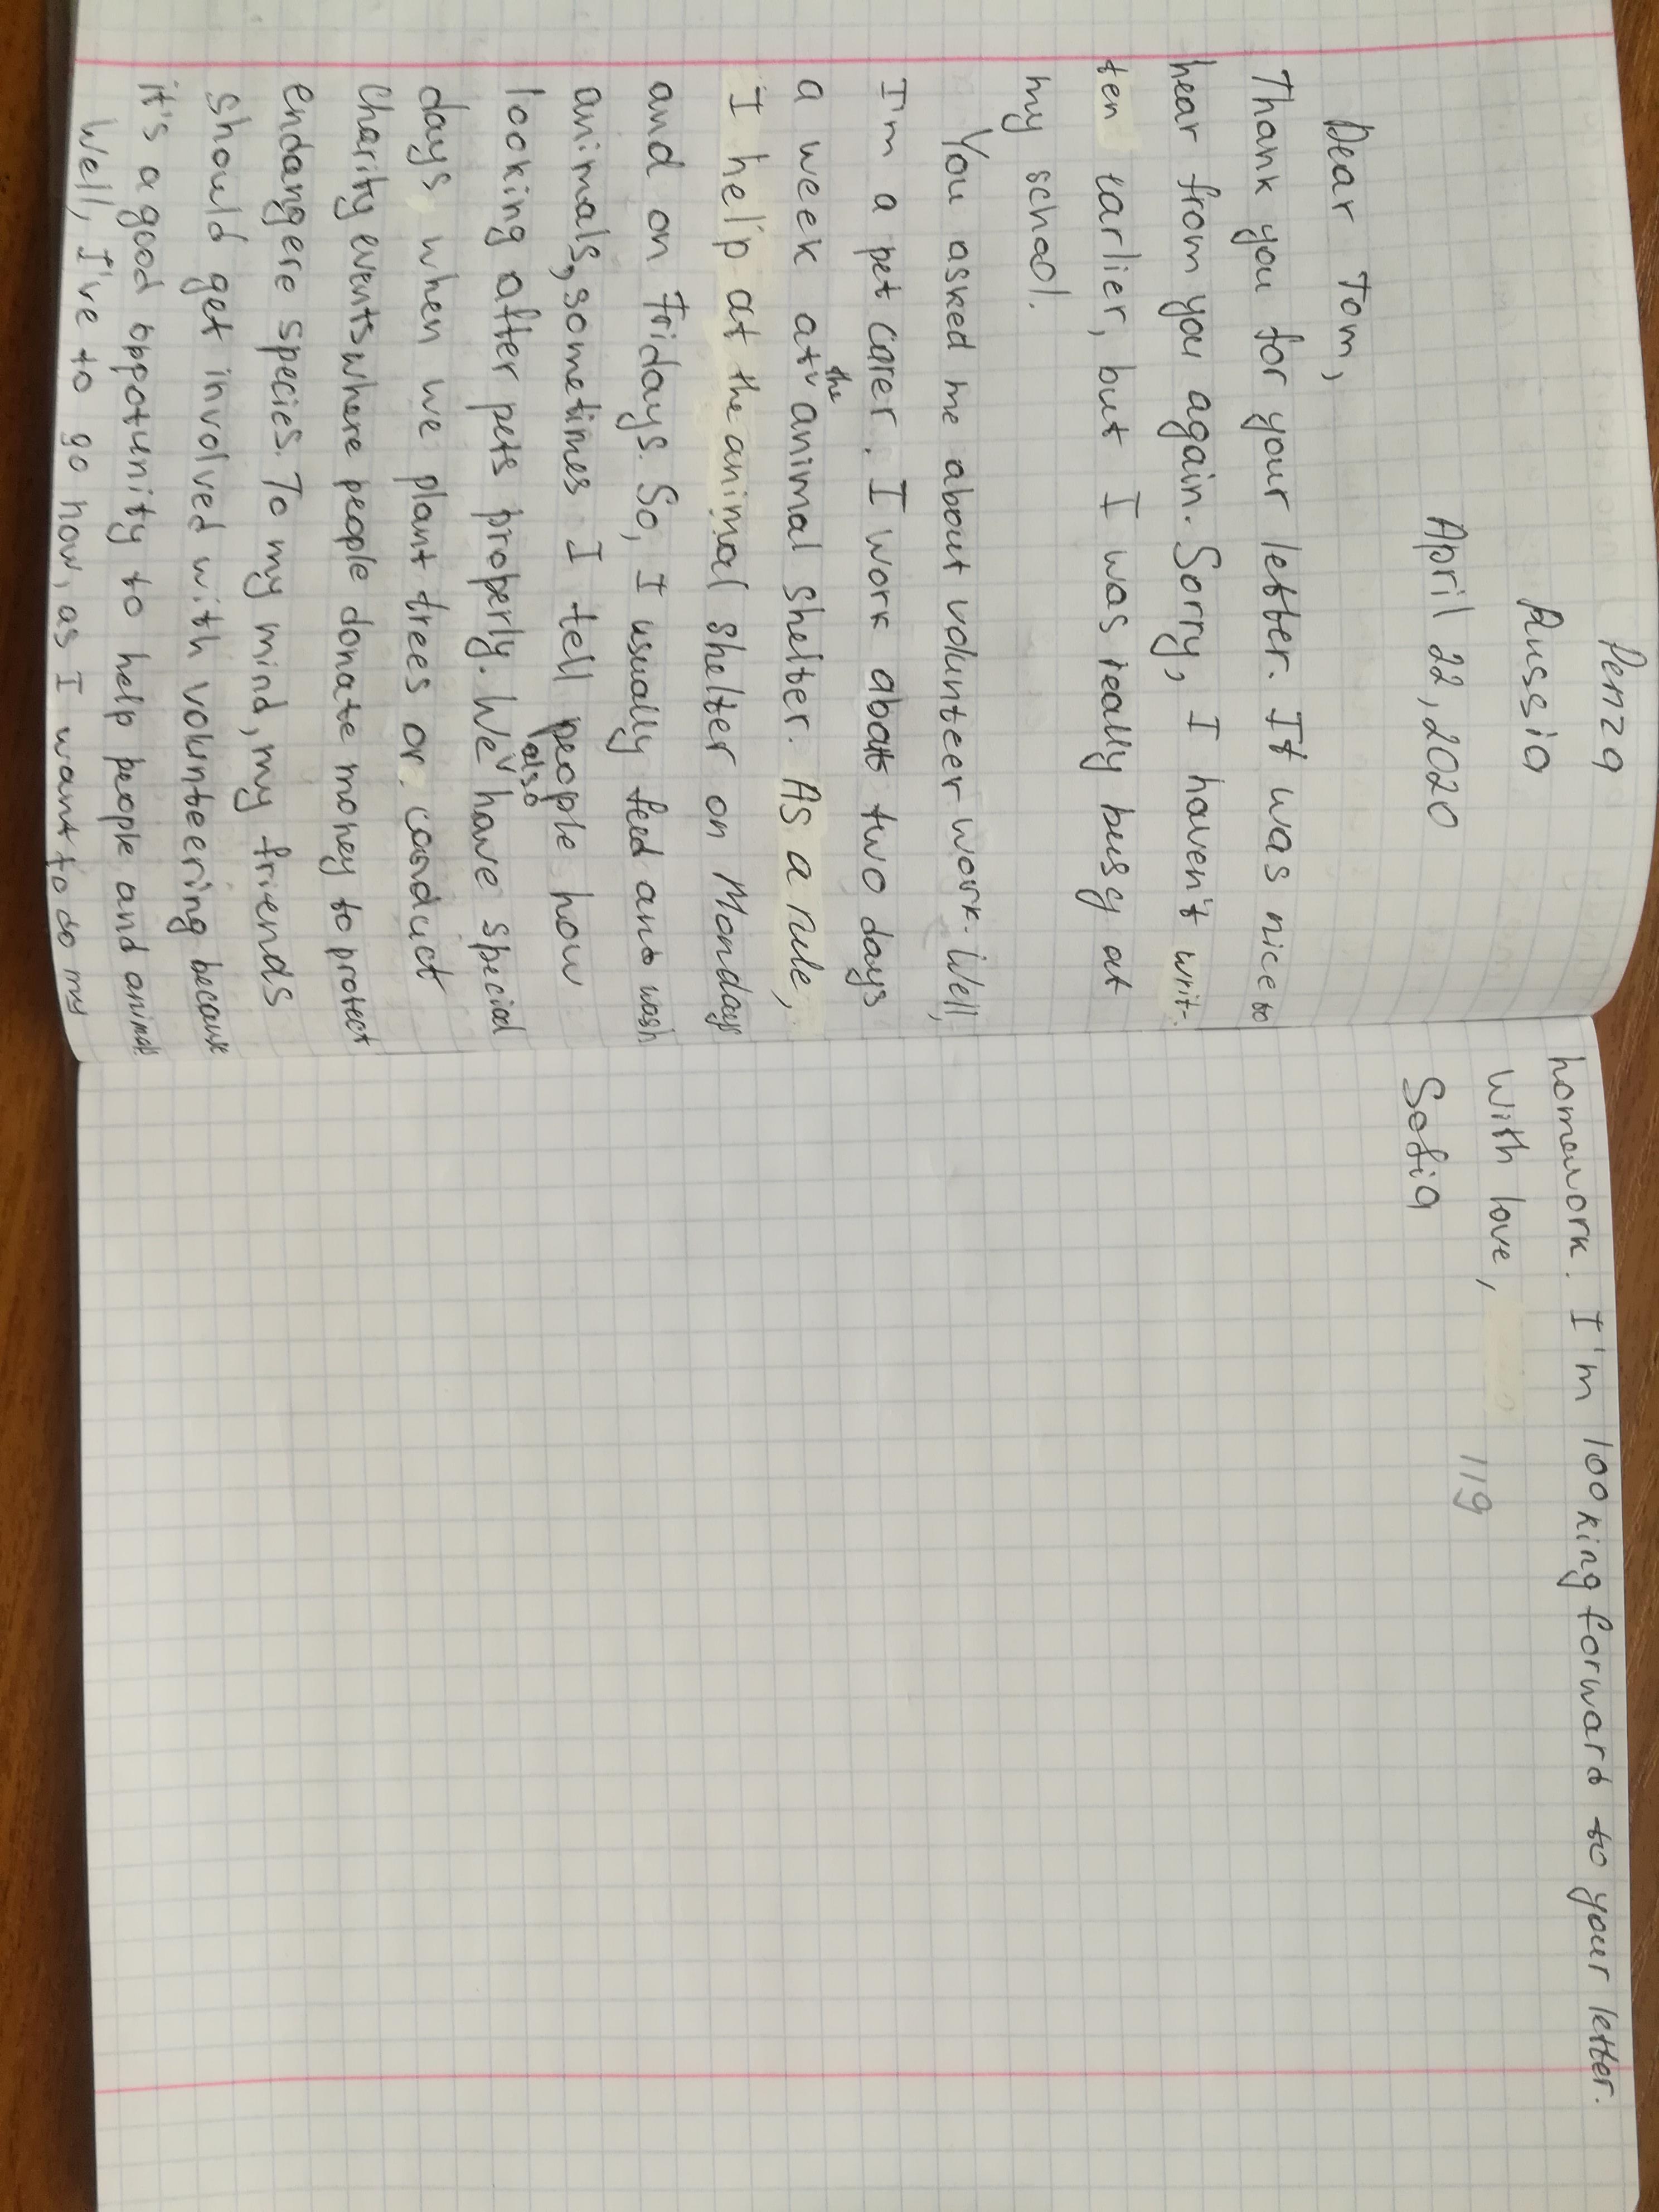 Penza
Russia
April 22, 2020
Dear Tom,
Thank you for your letter. It was nice to
hear from you again. Sorry, I haven't writ-
ten earlier, but I was really busy at
my school.
You asked me about volunteer work. Well,
I'm a pet carer. I work about two days
a week at the animal shelter. As a rule,
I help at the animal shelter on Mondays
and on Fridays. So, I usually feed and wash
animals, sometimes I tell people how
looking after pets properly. We also have special
days when we plant trees or conduct
charity events where people donate money to protect
endangere species. To my mind, my friends
should get involved with volunteering because
it's a good oppotunity to help people and animals
Well, I've to go now, as I want to do my
homework. I'm looking forward to your letter.
With love,
Sofia
119